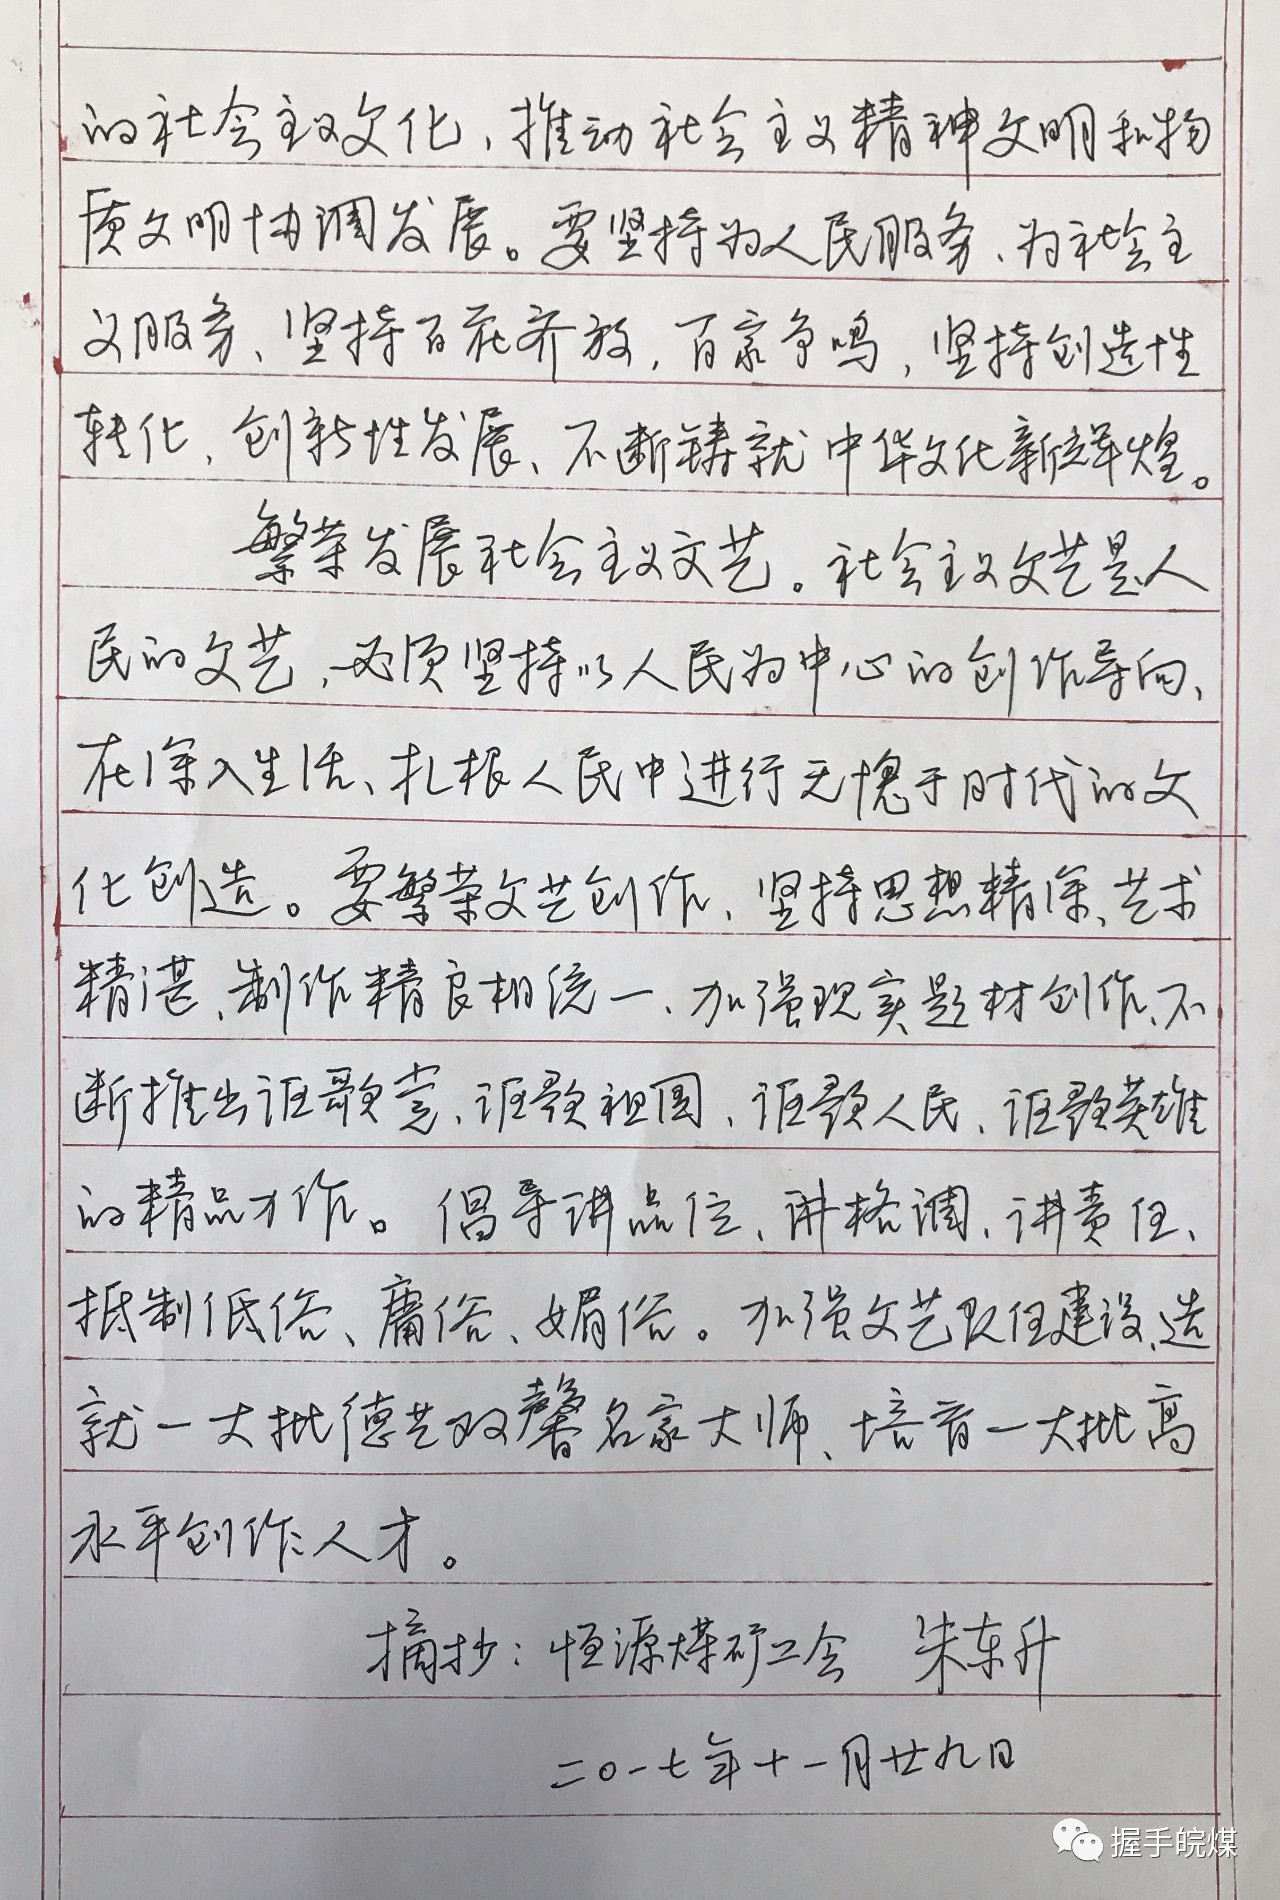 的社会主义文化、推动社会主义精神文明和物
质文明协调发展。要坚持为人民服务、为社会主
义服务、坚持百花齐放，百家争鸣，坚持创造性
转化、创新性发展、不断铸就中华文化新辉煌。
繁荣发展社会主义文艺。社会主义文艺是人
民的文艺，必须坚持以人民为中心的创作导向、
在深入生活、扎根人民中进行无愧于时代的文
化创造。要繁荣文艺创作、坚持思想精深、艺术
精湛、制作精良相统一、加强现实题材创作、不
断推出讴歌党、讴歌祖国、讴歌人民、讴歌英雄
的精品才作。倡导讲品位、讲格调、讲责任、
抵制低俗、庸俗、媚俗。加强文艺队伍建设、造
就一大批德艺双馨名家大师、培育一大批高
水平创作人才。
摘抄：恒源煤矿工会 朱东升
二〇一七年十一月廿九日
握手皖煤